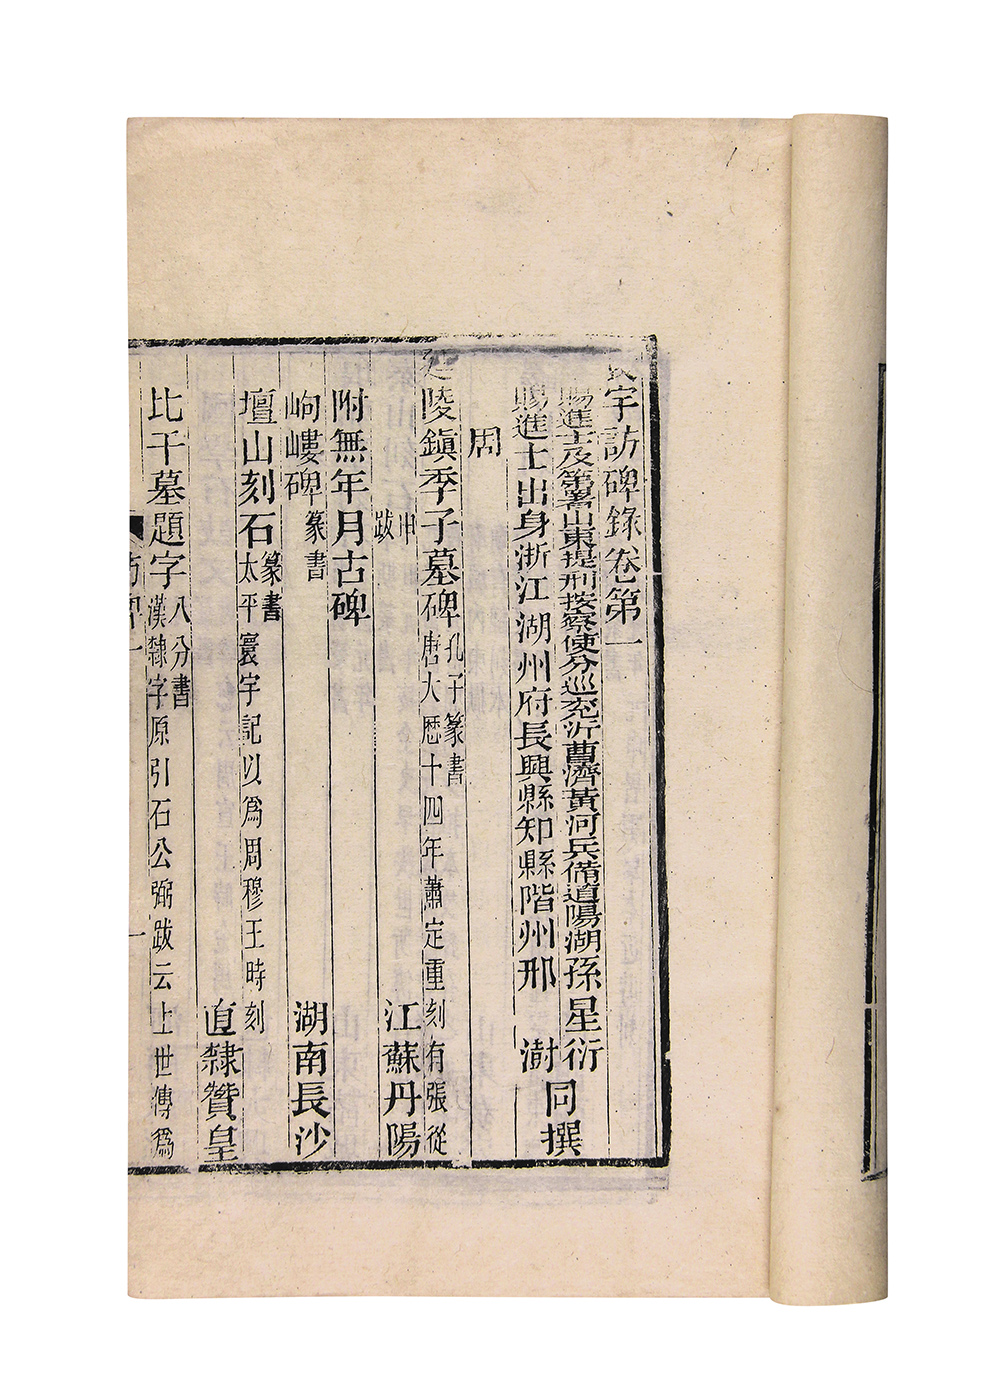 寰宇訪碑錄卷第一
賜進士及第署山東提刑按察使分巡兗沂曹濟黃河兵備道陽湖孫星衍
賜進士出身浙江湖州府長興縣知縣階州邢澍
同撰
周
延陵鎮季子墓碑孔子篆書
唐大歴十四年蕭定重刻有張從
申
跋
江蘇丹陽
附無年月古碑
岣嶁碑篆書
湖南長沙
壇山刻石篆書
太平寰宇記以爲周穆王時刻
直隸贊皇
比干墓題字八分書
漢隸字原引石公弼跋云上世傳爲